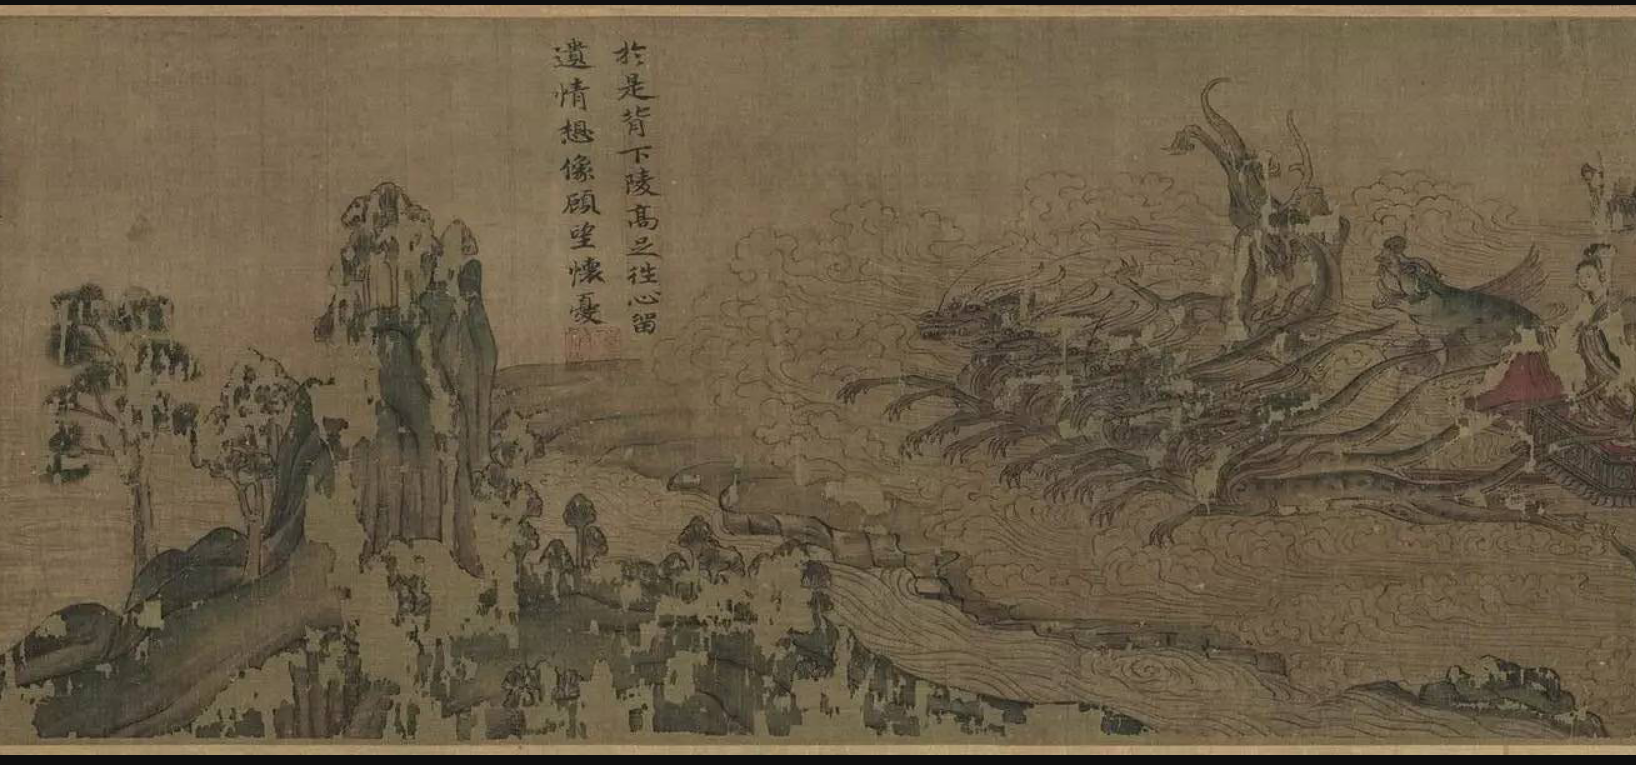 於是背下陵高足往心留
遺情想像顧望懷憂